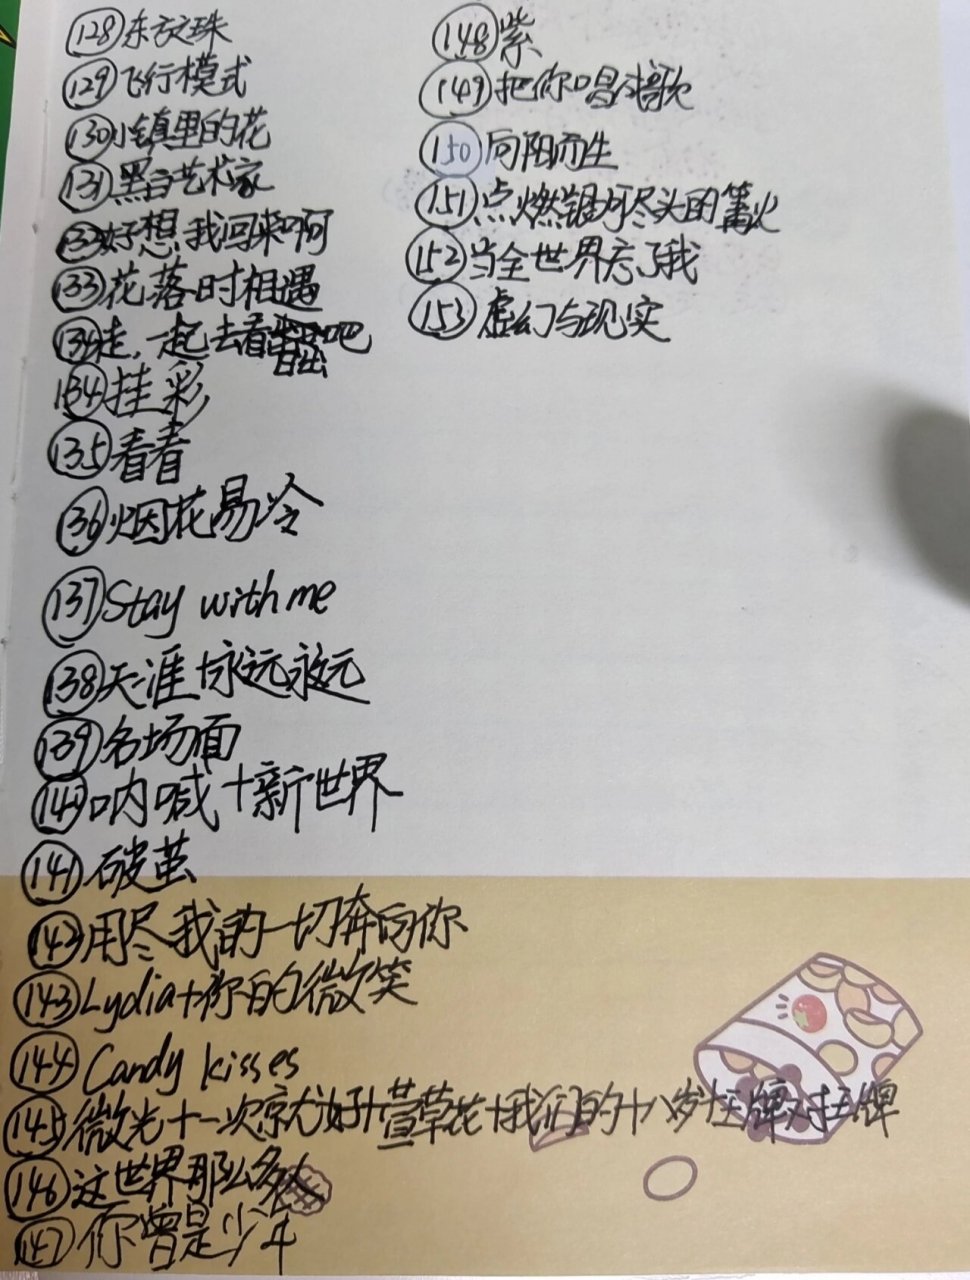 128 东方之珠
129 飞行模式
130 小镇里的花
131 黑白艺术家
132 好想我回来啊
133 花落时相遇
134 走,一起去看吧
134 挂彩
135 看看
136 烟花易冷
137 Stay with me
138 天涯+永远永远
139 名场面
140 呐喊+新世界
141 破茧
142 用尽我的一切奔向你
143 Lydia+你的微笑
144 Candy kisses
145 微光+一次就好+萱草花+我们的十八岁+王牌对王牌
146 这世界那么多人
147 你曾是少年
148 紫
149 把你唱成歌
150 向阳而生
151 点燃银河尽头的篝火
152 当全世界忘了我
153 虚幻与现实